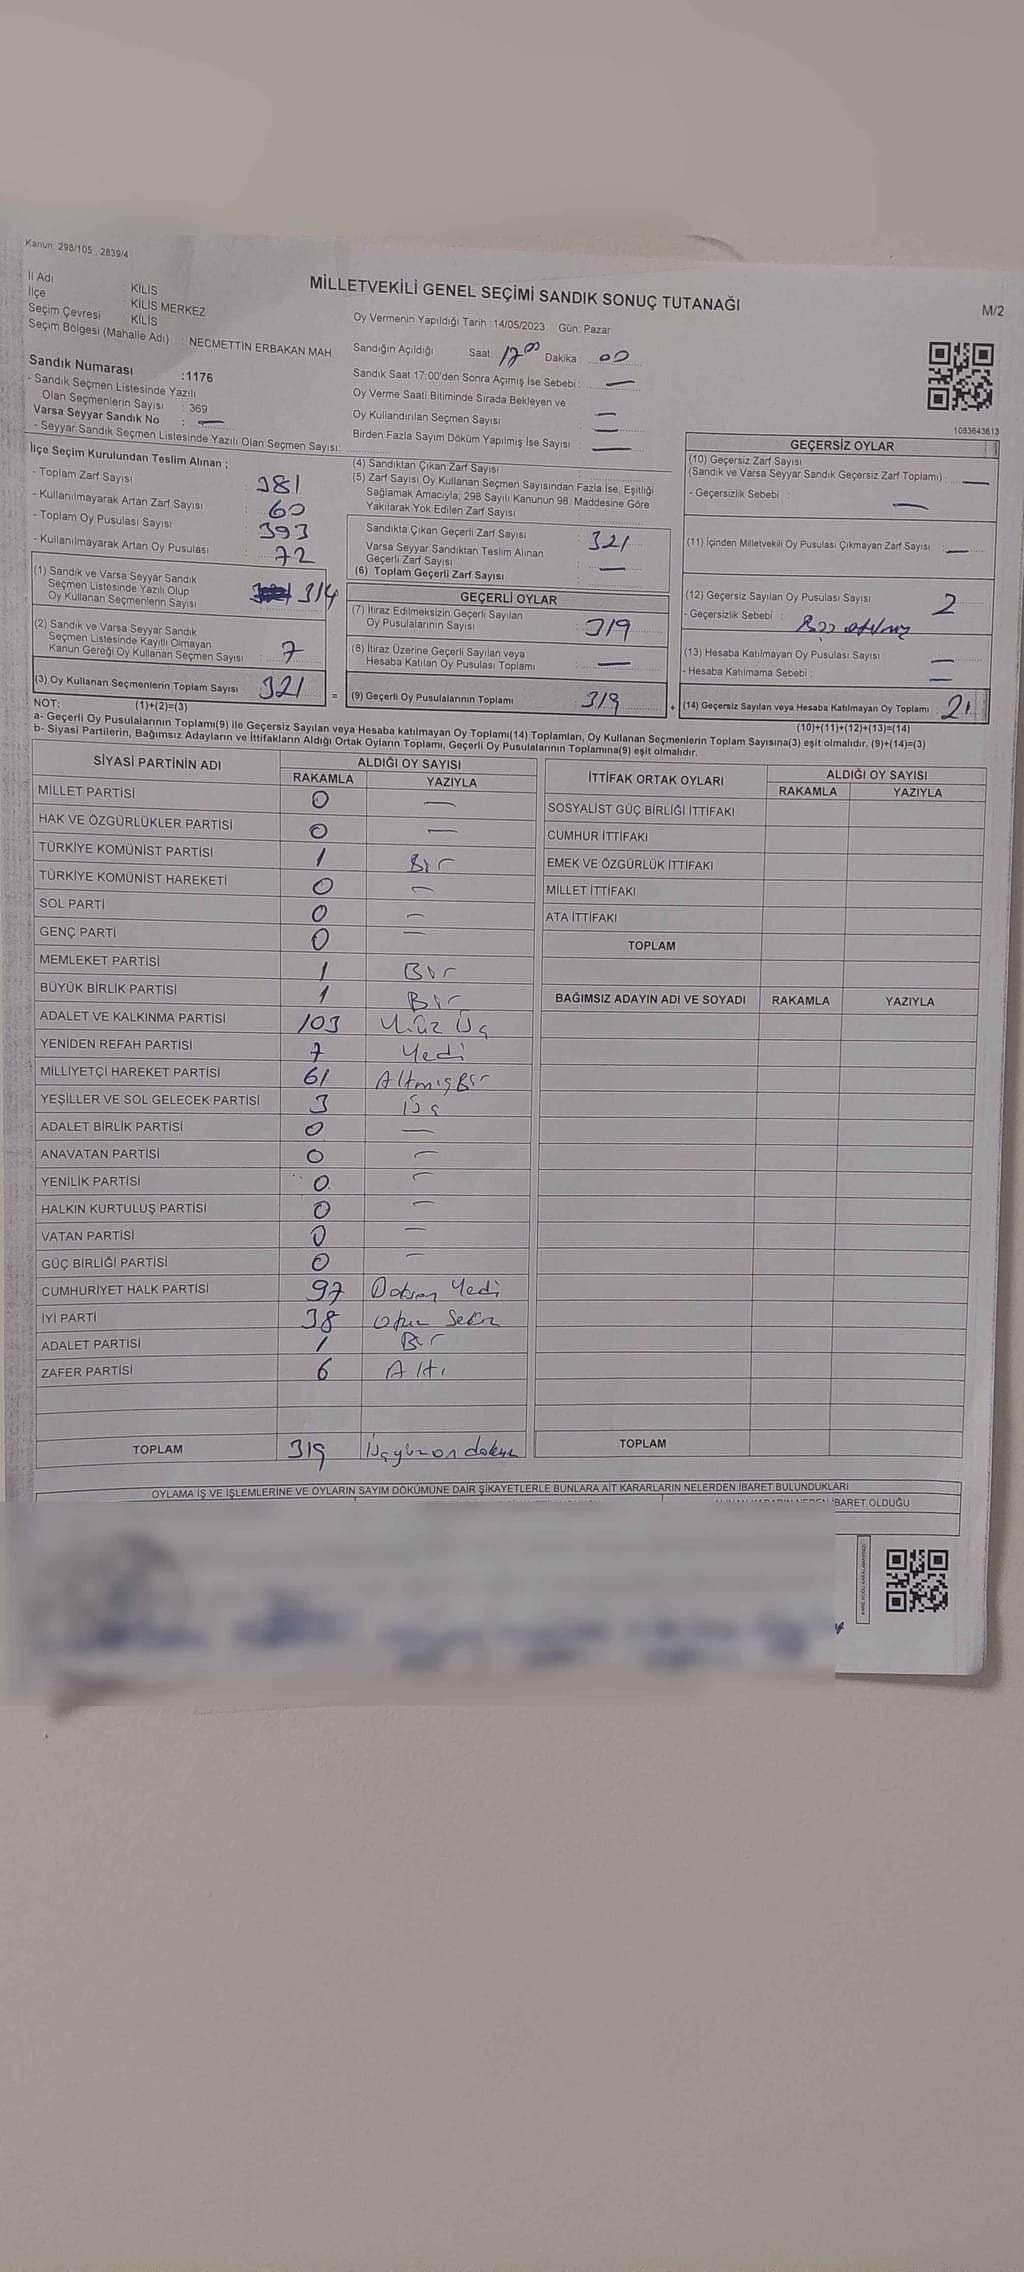 Kanun: 298/105 , 2839/4
MİLLETVEKİLİ GENEL SEÇİMİ SANDIK SONUÇ TUTANAĞI
M/2
İl Adı KİLİS
İlçe KİLİS MERKEZ
Seçim Çevresi KİLİS
Seçim Bölgesi (Mahalle Adı) : NECMETTİN ERBAKAN MAH.
Sandık Numarası :1176
- Sandık Seçmen Listesinde Yazılı
Olan Seçmenlerin Sayısı : 369
Varsa Seyyar Sandık No : —
- Seyyar Sandık Seçmen Listesinde Yazılı Olan Seçmen Sayısı:
Oy Vermenin Yapıldığı Tarih :14/05/2023 Gün: Pazar
Sandığın Açıldığı Saat: 17 00 Dakika : 00
Sandık Saat 17:00'den Sonra Açımış İse Sebebi : —
Oy Verme Saati Bitiminde Sırada Bekleyen ve
Oy Kullandırılan Seçmen Sayısı —
Birden Fazla Sayım Döküm Yapılmış İse Sayısı : —
1083643613
İlçe Seçim Kurulundan Teslim Alınan ;
- Toplam Zarf Sayısı : 381
- Kullanılmayarak Artan Zarf Sayısı : 60
- Toplam Oy Pusulası Sayısı : 393
- Kullanılmayarak Artan Oy Pusulası : 72
(1) Sandık ve Varsa Seyyar Sandık
Seçmen Listesinde Yazılı Olup
Oy Kullanan Seçmenlerin Sayısı 314
(2) Sandık ve Varsa Seyyar Sandık
Seçmen Listesinde Kayıtlı Olmayan
Kanun Gereği Oy Kullanan Seçmen Sayısı : 7
(3) Oy Kullanan Seçmenlerin Toplam Sayısı 321 =
(4) Sandıktan Çıkan Zarf Sayısı
(5) Zarf Sayısı Oy Kullanan Seçmen Sayısından Fazla İse, Eşitliği
Sağlamak Amacıyla; 298 Sayılı Kanunun 98. Maddesine Göre
Yakılarak Yok Edilen Zarf Sayısı
Sandıkta Çıkan Geçerli Zarf Sayısı : 321
Varsa Seyyar Sandıktan Teslim Alınan
Geçerli Zarf Sayısı : —
(6) Toplam Geçerli Zarf Sayısı :
GEÇERLİ OYLAR
(7) İtiraz Edilmeksizin Geçerli Sayılan
Oy Pusulalarının Sayısı : 319
(8) İtiraz Üzerine Geçerli Sayılan veya
Hesaba Katılan Oy Pusulası Toplamı : —
(9) Geçerli Oy Pusulalarının Toplamı : 319 +
GEÇERSİZ OYLAR
(10) Geçersiz Zarf Sayısı
(Sandık ve Varsa Seyyar Sandık Geçersiz Zarf Toplamı) : —
- Geçersizlik Sebebi : —
(11) İçinden Milletvekili Oy Pusulası Çıkmayan Zarf Sayısı : —
(12) Geçersiz Sayılan Oy Pusulası Sayısı 2
- Geçersizlik Sebebi :
(13) Hesaba Katılmayan Oy Pusulası Sayısı —
- Hesaba Katılmama Sebebi : —
(14) Geçersiz Sayılan veya Hesaba Katılmayan Oy Toplamı : 2
NOT: (1)+(2)=(3)
(10)+(11)+(12)+(13)=(14)
a- Geçerli Oy Pusulalarının Toplamı(9) ile Geçersiz Sayılan veya Hesaba katılmayan Oy Toplamı(14) Toplamları, Oy Kullanan Seçmenlerin Toplam Sayısına(3) eşit olmalıdır. (9)+(14)=(3)
b- Siyasi Partilerin, Bağımsız Adayların ve İttifakların Aldığı Ortak Oyların Toplamı, Geçerli Oy Pusulalarının Toplamına(9) eşit olmalıdır.
SİYASİ PARTİNİN ADI ALDIĞI OY SAYISI
RAKAMLA YAZIYLA
MİLLET PARTİSİ 0 —
HAK VE ÖZGÜRLÜKLER PARTİSİ 0 —
TÜRKİYE KOMÜNİST PARTİSİ 1 Bir
TÜRKİYE KOMÜNİST HAREKETİ 0 —
SOL PARTİ 0 —
GENÇ PARTİ 0 —
MEMLEKET PARTİSİ 1 Bir
BÜYÜK BİRLİK PARTİSİ 1 Bir
ADALET VE KALKINMA PARTİSİ 103 Yüz Üç
YENİDEN REFAH PARTİSİ 7 Yedi
MİLLİYETÇİ HAREKET PARTİSİ 61 Altmış Bir
YEŞİLLER VE SOL GELECEK PARTİSİ 3 Üç
ADALET BİRLİK PARTİSİ 0 —
ANAVATAN PARTİSİ 0 —
YENİLİK PARTİSİ 0 —
HALKIN KURTULUŞ PARTİSİ 0 —
VATAN PARTİSİ 0 —
GÜÇ BİRLİĞİ PARTİSİ 0 —
CUMHURİYET HALK PARTİSİ 97 Doksan Yedi
İYİ PARTİ 38 Otuz Sekiz
ADALET PARTİSİ 1 Bir
ZAFER PARTİSİ 6 Altı
TOPLAM 319 Üçyüzon dokuz
İTTİFAK ORTAK OYLARI ALDIĞI OY SAYISI
RAKAMLA YAZIYLA
SOSYALİST GÜÇ BİRLİĞİ İTTİFAKI
CUMHUR İTTİFAKI
EMEK VE ÖZGÜRLÜK İTTİFAKI
MİLLET İTTİFAKI
ATA İTTİFAKI
TOPLAM
BAĞIMSIZ ADAYIN ADI VE SOYADI RAKAMLA YAZIYLA
TOPLAM
OYLAMA İŞ VE İŞLEMLERİNE VE OYLARIN SAYIM DÖKÜMÜNE DAİR ŞİKAYETLERLE BUNLARA AİT KARARLARIN NELERDEN İBARET BULUNDUKLARI
İBARET OLDUĞU